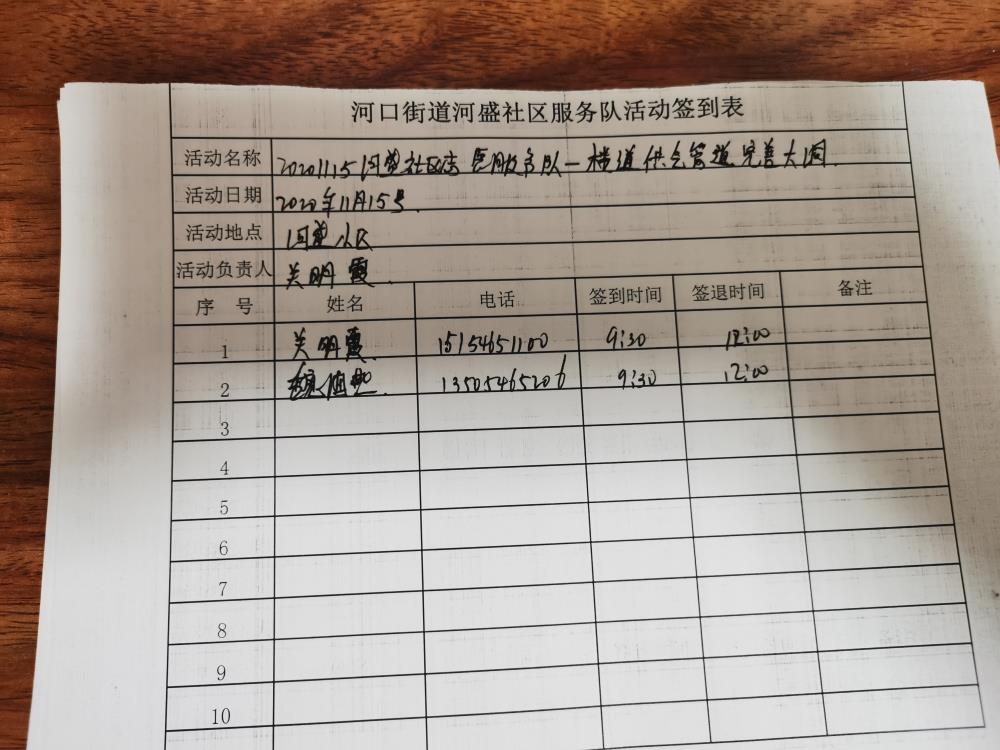 河口街道河盛社区服务队活动签到表
活动名称 20201115河盛社区志愿服务队一楼道供气管道完善
活动日期 2020年11月15号.
活动地点 河盛小区
活动负责人 关明霞.
序 号 姓名 电话 签到时间 签退时间 备注
1 关明霞. 15154651100 9:30 12:00
2 13505465206 9:30 12:00
3
4
5
6
7
8
9
10